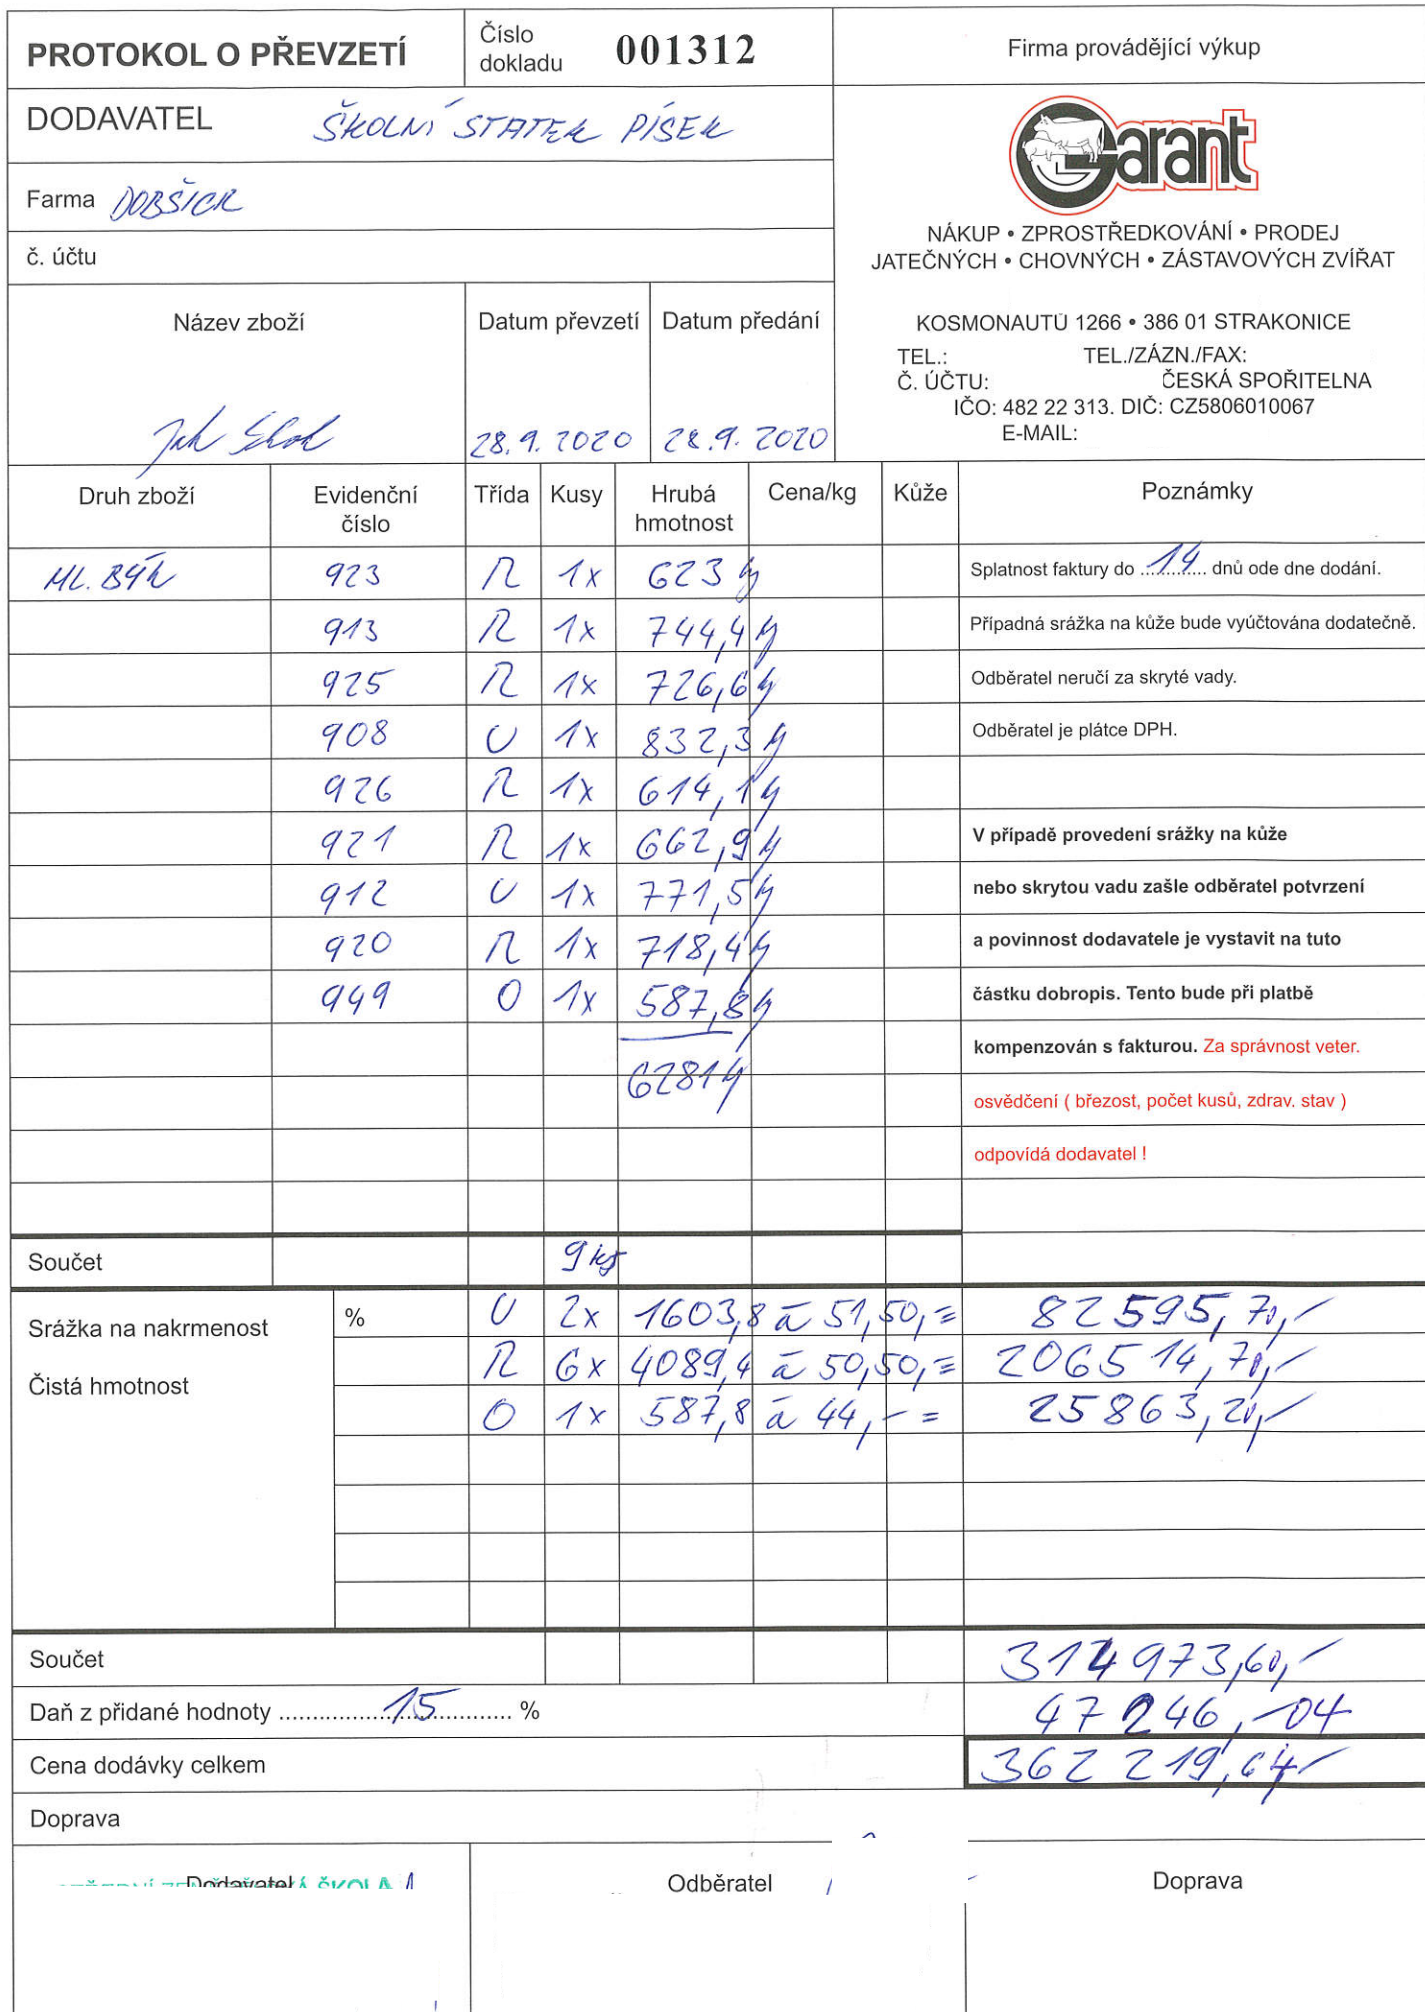 PROTOKOL O PŘEVZETÍ
Číslo dokladu 001312
Firma provádějící výkup
DODAVATEL ŠKOLNÍ STATEK PÍSEK
Garant
Farma DOBŠICE
NÁKUP • ZPROSTŘEDKOVÁNÍ • PRODEJ
JATEČNÝCH • CHOVNÝCH • ZÁSTAVOVÝCH ZVÍŘAT
č. účtu
KOSMONAUTŮ 1266 • 386 01 STRAKONICE
TEL.: TEL./ZÁZN./FAX:
Č. ÚČTU: ČESKÁ SPOŘITELNA
IČO: 482 22 313. DIČ: CZ5806010067
E-MAIL:
Název zboží Datum převzetí Datum předání
Jat. Skot 28.9.2020 28.9.2020
Druh zboží Evidenční číslo Třída Kusy Hrubá hmotnost Cena/kg Kůže Poznámky
ML. BÝK 923 R 1x 623 kg Splatnost faktury do 14 dnů ode dne dodání.
913 R 1x 744,4 kg Případná srážka na kůže bude vyúčtována dodatečně.
925 R 1x 726,6 kg Odběratel neručí za skryté vady.
908 U 1x 832,3 kg Odběratel je plátce DPH.
926 R 1x 614,1 kg
921 R 1x 662,9 kg V případě provedení srážky na kůže
912 U 1x 771,5 kg nebo skrytou vadu zašle odběratel potvrzení
920 R 1x 718,4 kg a povinnost dodavatele je vystavit na tuto
949 O 1x 587,8 kg částku dobropis. Tento bude při platbě
kompenzován s fakturou. Za správnost veter.
6281 kg osvědčení ( březost, počet kusů, zdrav. stav )
odpovídá dodavatel !
Součet 9 ks
Srážka na nakrmenost % U 2x 1603,8 à 51,50,= 82595,70,-
Čistá hmotnost R 6x 4089,4 à 50,50,= 206514,70,-
O 1x 587,8 à 44,- = 25863,20,-
Součet 314973,60,-
Daň z přidané hodnoty 15 % 47246,-04
Cena dodávky celkem 362219,64,-
Doprava
Dodavatel Odběratel Doprava
ŠKOLA